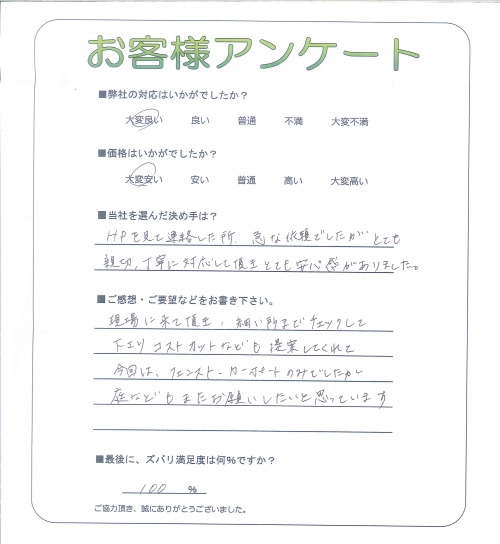 お客様アンケート
■弊社の対応はいかがでしたか？
大変良い 良い 普通 不満 大変不満
■価格はいかがでしたか？
大変安い 安い 普通 高い 大変高い
■当社を選んだ決め手は？
HPを見て連絡した所、急な依頼でしたがとても
親切、丁寧に対応して頂きとても安心感がありました。
■ご感想・ご要望などをお書き下さい。
現場に来て頂き、細い所までチェックして
下さり コストカットなども提案してくれて
今回は、フェンス・カーポートのみでしたが
庭などもまたお願いしたいと思っています
■最後に、ズバリ満足度は何％ですか？
100 ％
ご協力頂き、誠にありがとうございました。